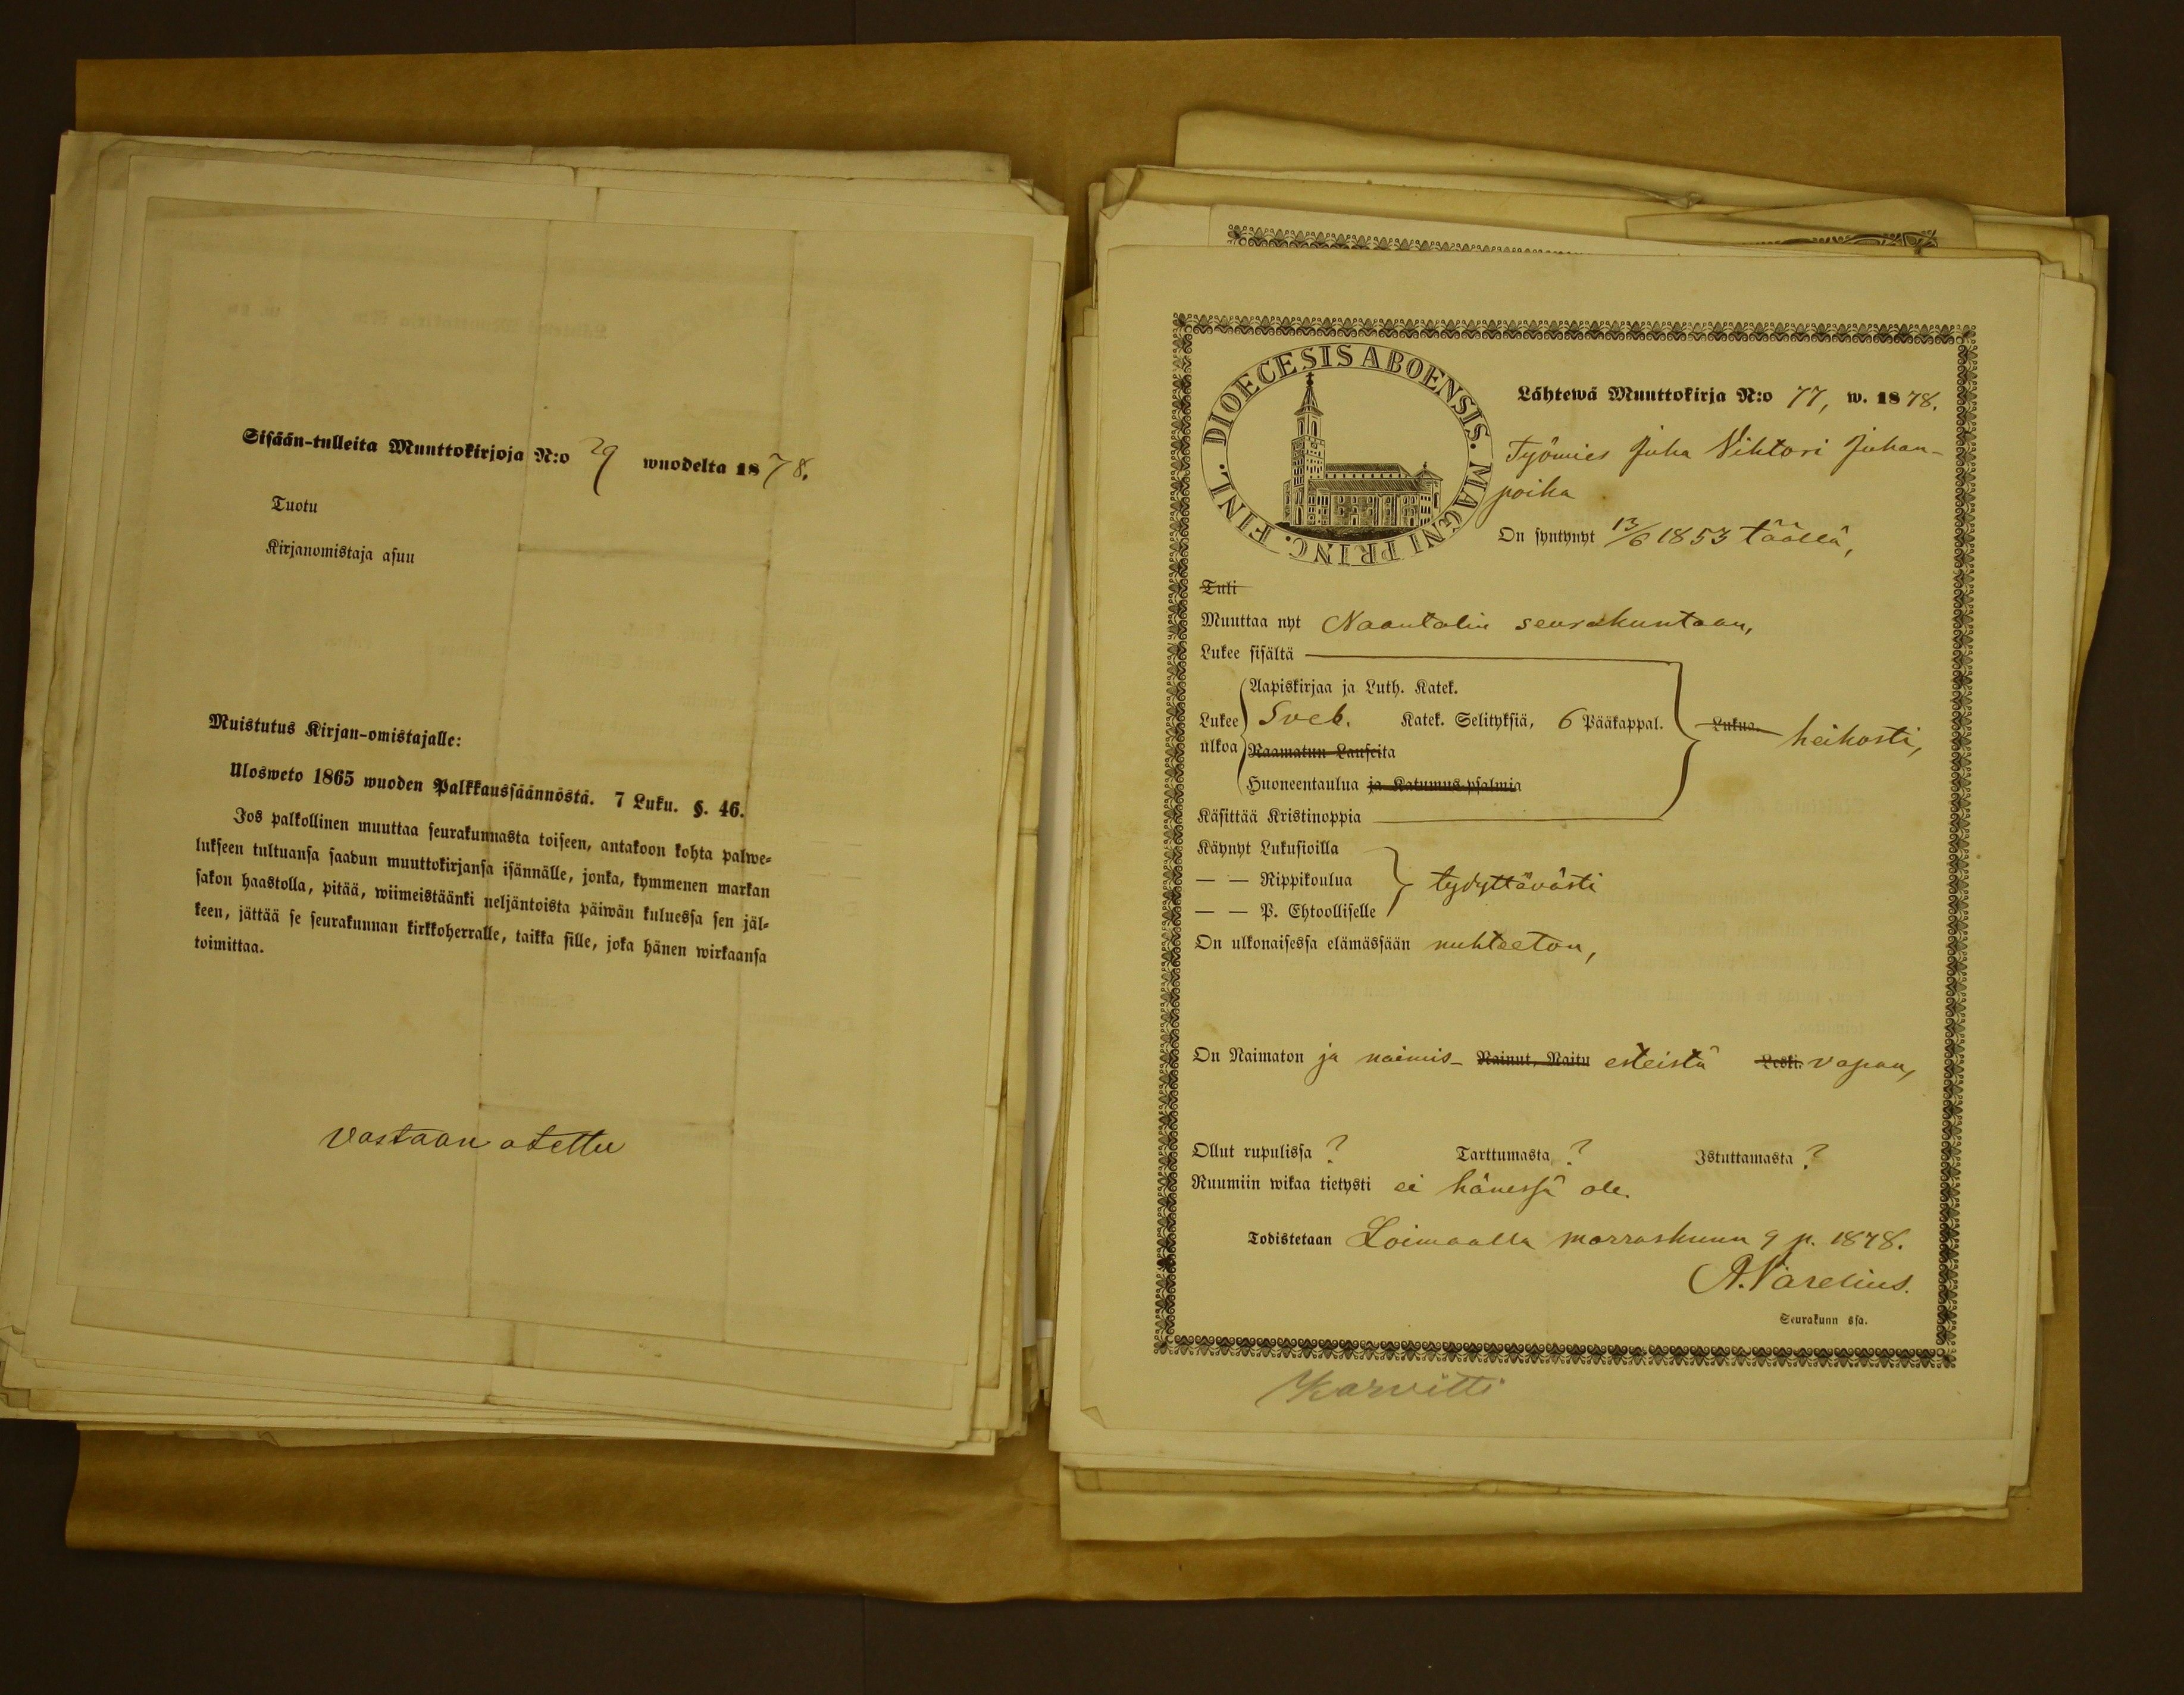 Sisään-tulleita Muuttokirjoja N:o 29 wuodelta 1878.
Tuotu
Kirjanomistaja asuu
Muistutus Kirjan-omistajalle:
Ulosweto 1865 wuoden Palkkaussäännöstä. 7 Luku. §. 46.
Jos palkollinen muuttaa seurakunnasta toiseen, antakoon kohta palwe-
lukseen tultuansa saadun muuttokirjansa isännälle, jonka, kymmenen markan
sakon haastolla, pitää, wiimeistäänki neljäntoista päiwän kuluessa sen jäl-
keen, jättää se seurakunnan kirkkoherralle, taikka sille, joka hänen wirkaansa
toimittaa.
Vastaan otettu
DIOECESIS ABOENSIS. MAGNI PRINC. FINL.
Lähtewä Muuttokirja N:o 77, w. 1878.
Työmies Juha Vihtori Juhan-
poika
On syntynyt 13/6 1853 täällä,
Tuli
Muuttaa nyt Naantalin seurakuntaan,
Lukee sisältä
Lukee ulkoa
Aapiskirjaa ja Luth. Katek.
Sveb. Katek. Selityksiä, 6 Pääkappal.
Raamatun Lauseita
Huoneentaulua ja Katumus-psalmia
Lukua. heikosti,
Käsittää Kristinoppia
Käynyt Lukusioilla
— — Rippikoulua tydyttävästi
— — P. Ehtoolliselle
On ulkonaisessa elämässään nuhteeton,
On Naimaton ja naimis- Nainut, Naitu esteistä Leski. vapaa,
Ollut rupulissa ? Tarttumasta ? Istuttamasta ?
Ruumiin wikaa tietysti ei hänessä ole.
Todistetaan Loimaalla marraskuun 9 p. 1878.
A. Varelius.
Seurakunn ssa.
Karvitti